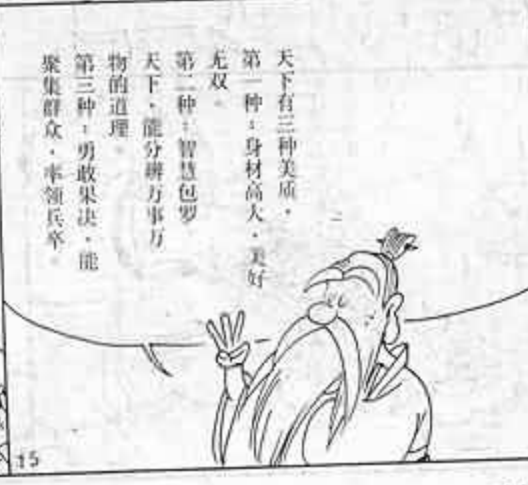 天下有三种美质，
第一种：身材高大，美好
无双。
第二种：智慧包罗
天下，能分辨万事万
物的道理。
第三种：勇敢果决，能
聚集群众，率领兵卒。
15